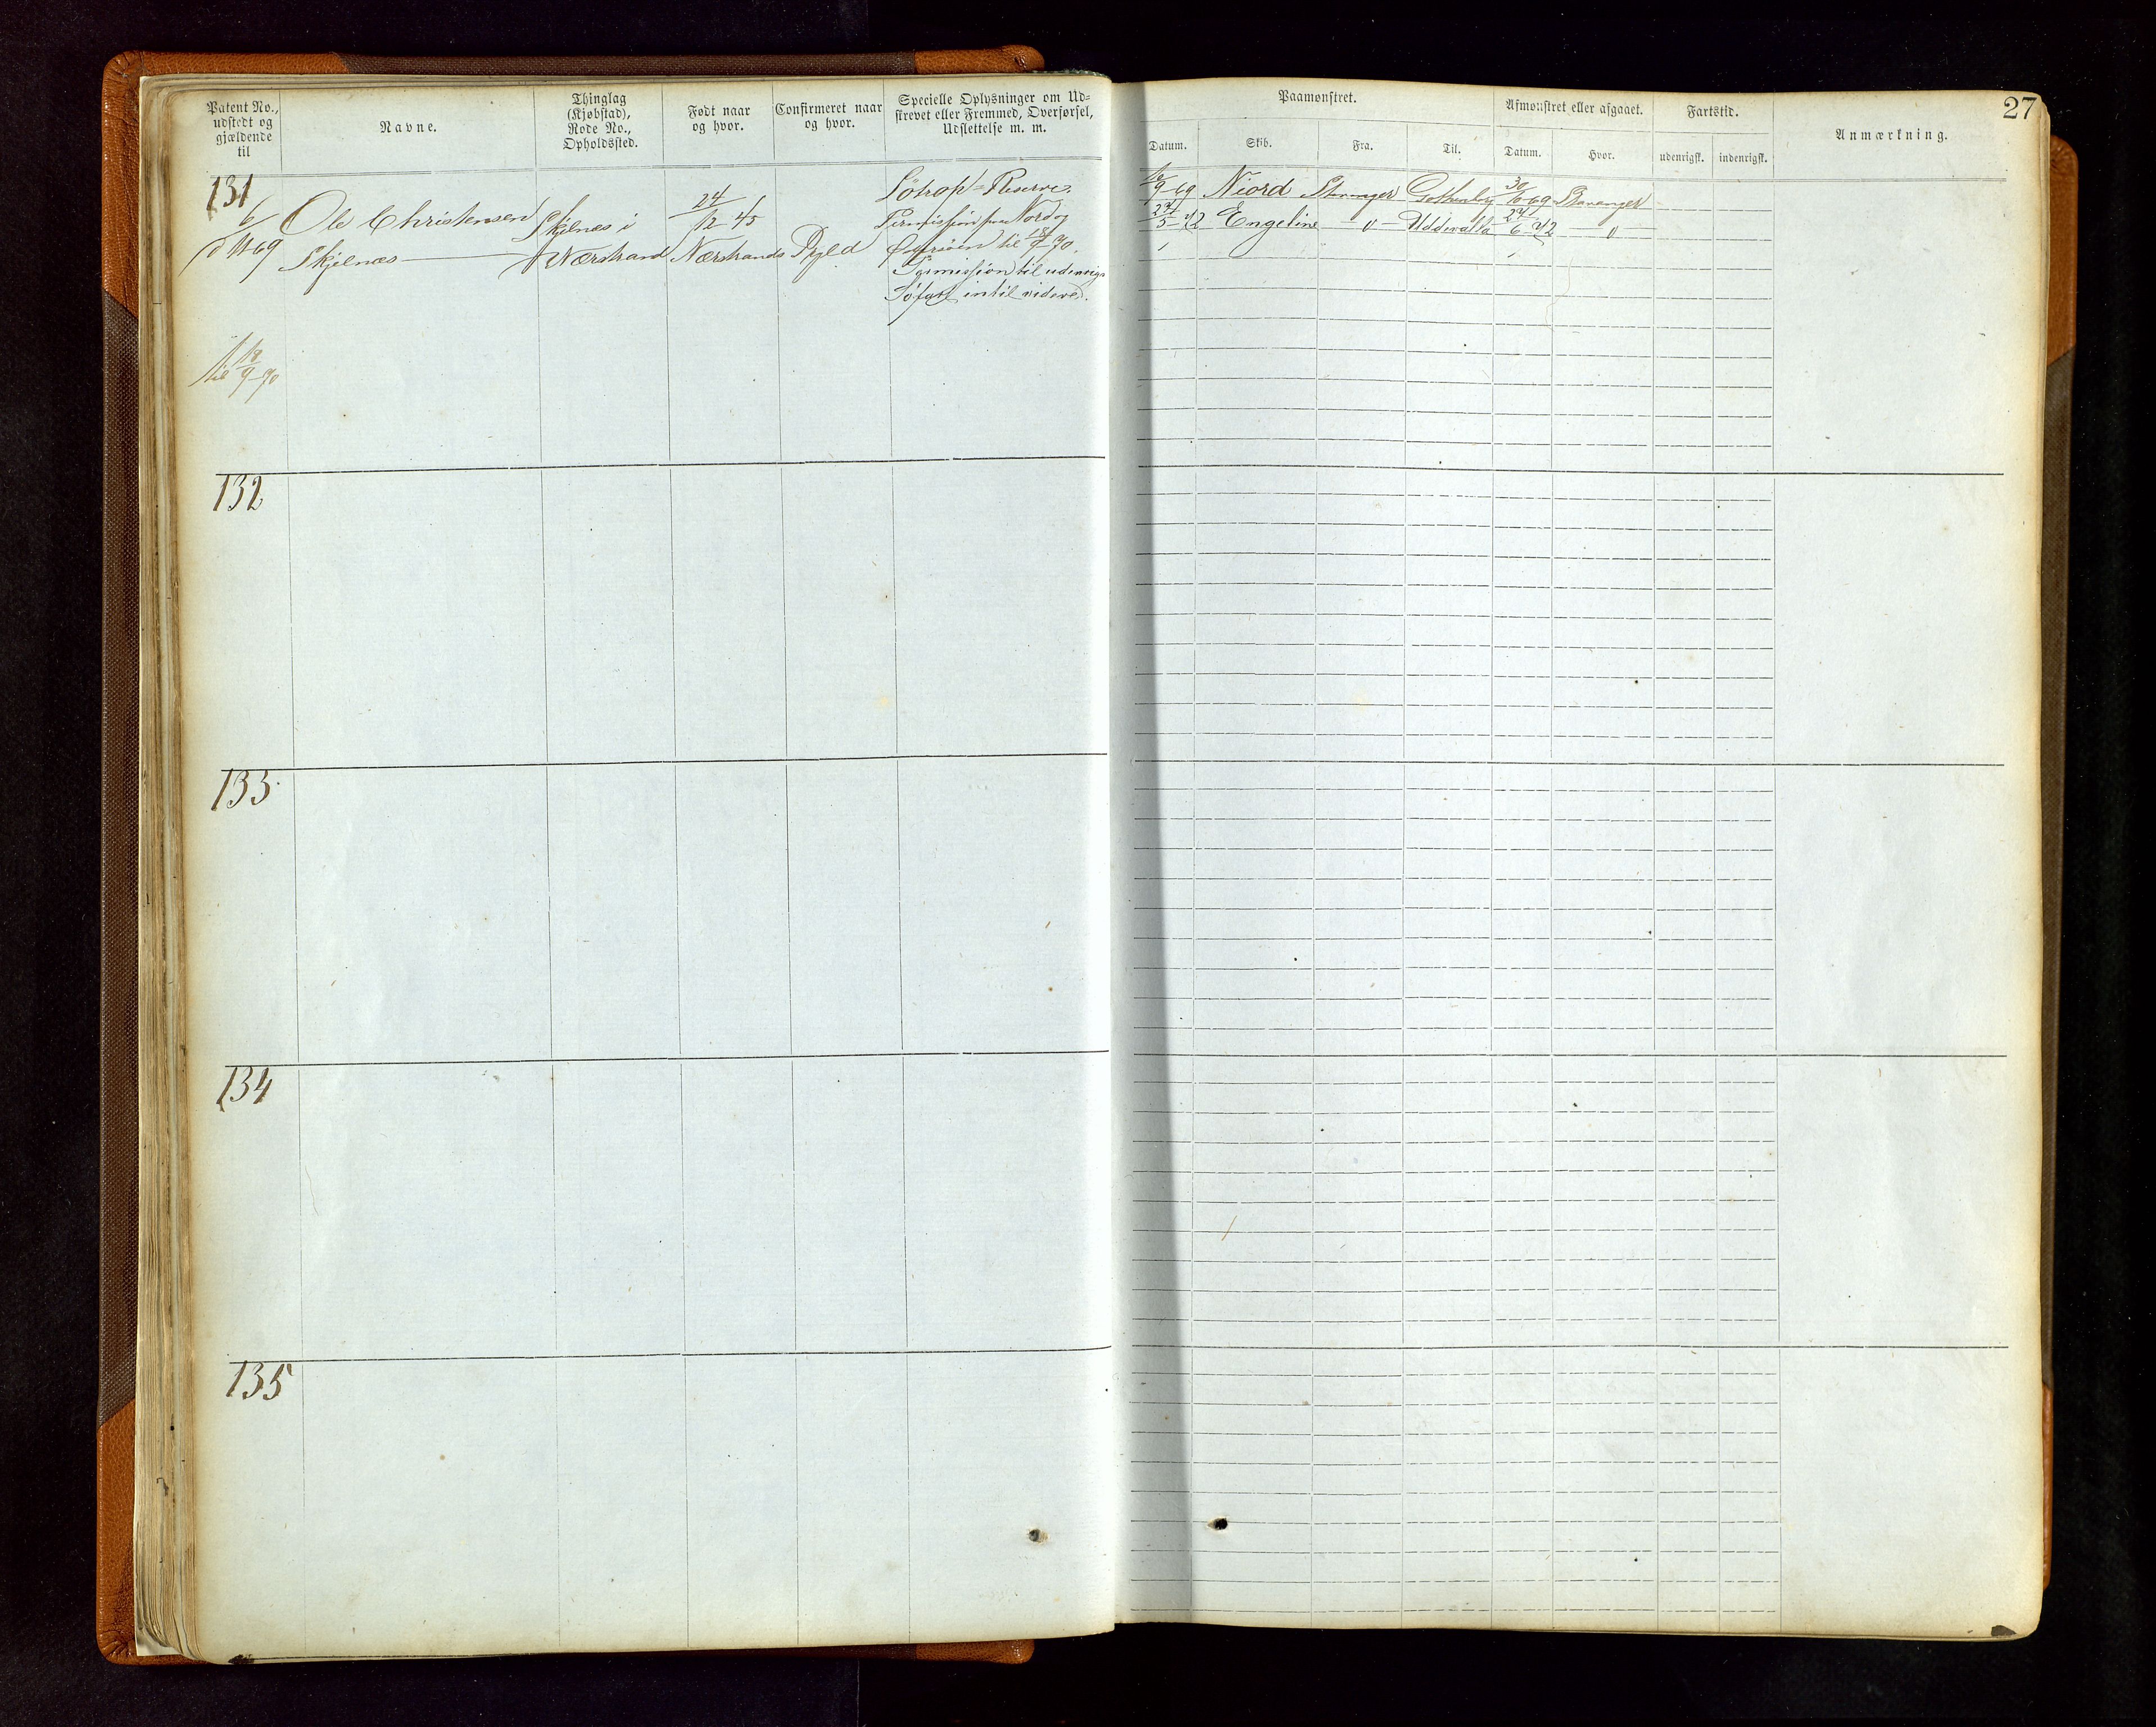 Patent No.,
udstedt og
gjældende
til
Navne.
Thinglag
(Kjøbstad),
Rode No.,
Opholdssted.
Født naar
og hvor.
Confirmeret naar
og hvor.
Specielle Oplysninger om Ud-
skrevet eller Fremmed, Overførsel,
Udslettelse m. m.
131
6/11 69
Ole Christensen
Skjelnæs
Skjelnæs i
Nærstrand
24/12 45
Nærstrands Pgld
Søtrop Reserve
Permission fra Nord og
til 18/9 70.
Permission til udenrigs
Søfart intil videre.
til 18/9 70
132
133.
134
135
27
Paamønstret.
Afmønstret eller afgaaet.
Fartstid.
Anmærkning.
Datum.
Skib.
Fra.
Til.
Datum.
Hvor.
udenrigsk.
indenrigsk.
16/9 69 Niord Stavanger Gothenborg 30/10 69 Stavanger
24/5 72 Engeline — " — Uddevalla 24/6 72 — " —